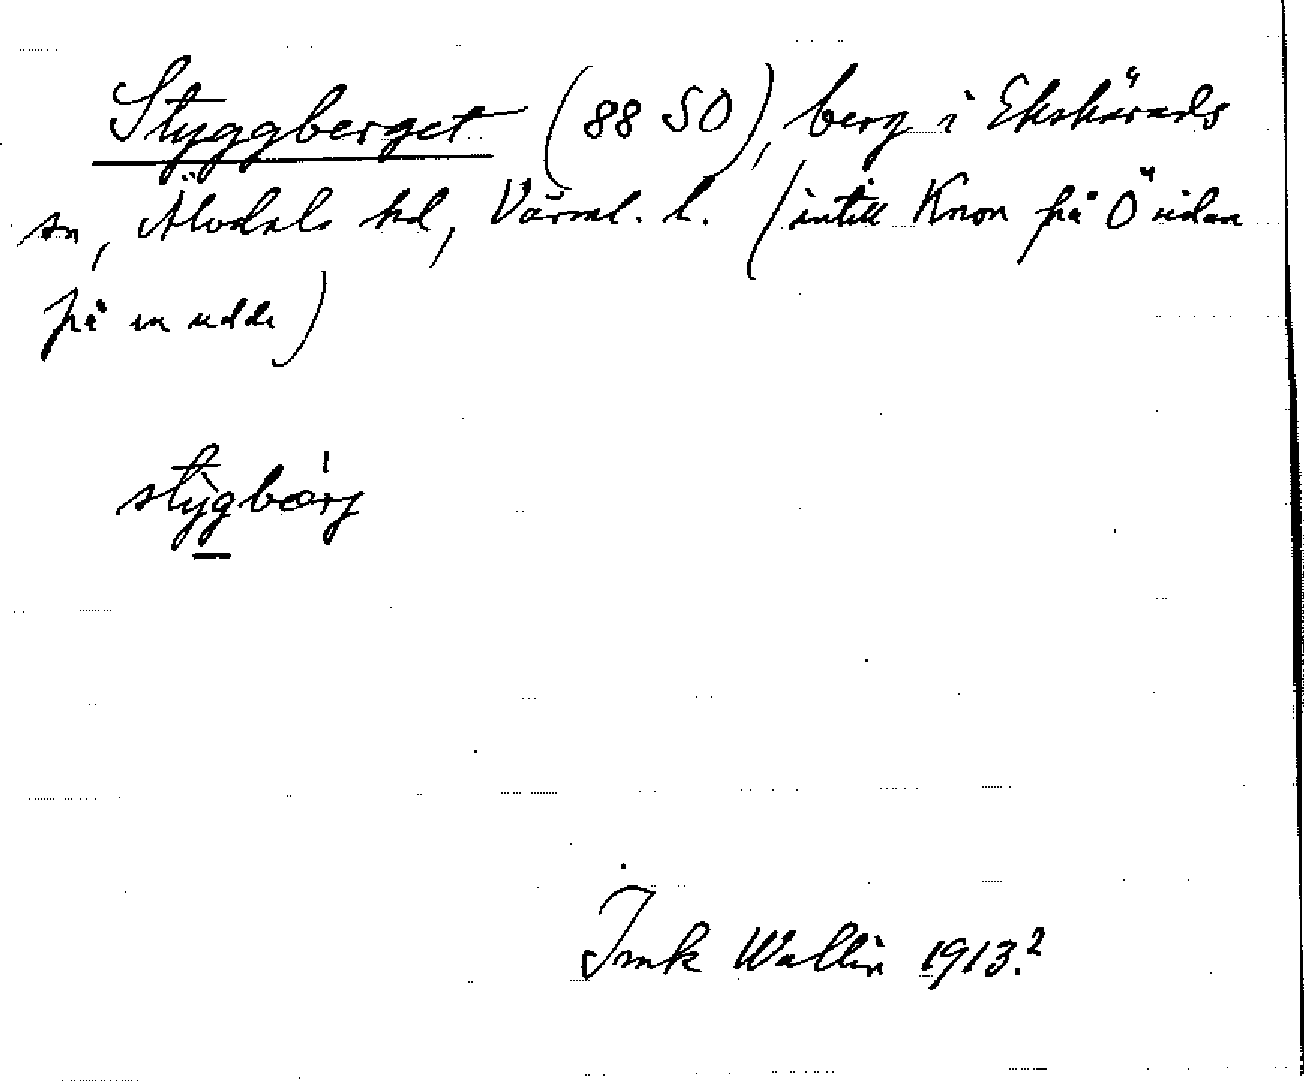 Styggberget (88 SO), berg i Ekshärads
sn, Älvdals hd, Värml. l. (intill Knon på Ö sidan
på en udde)
stýgbærj
Jmk Wallin 1913.²